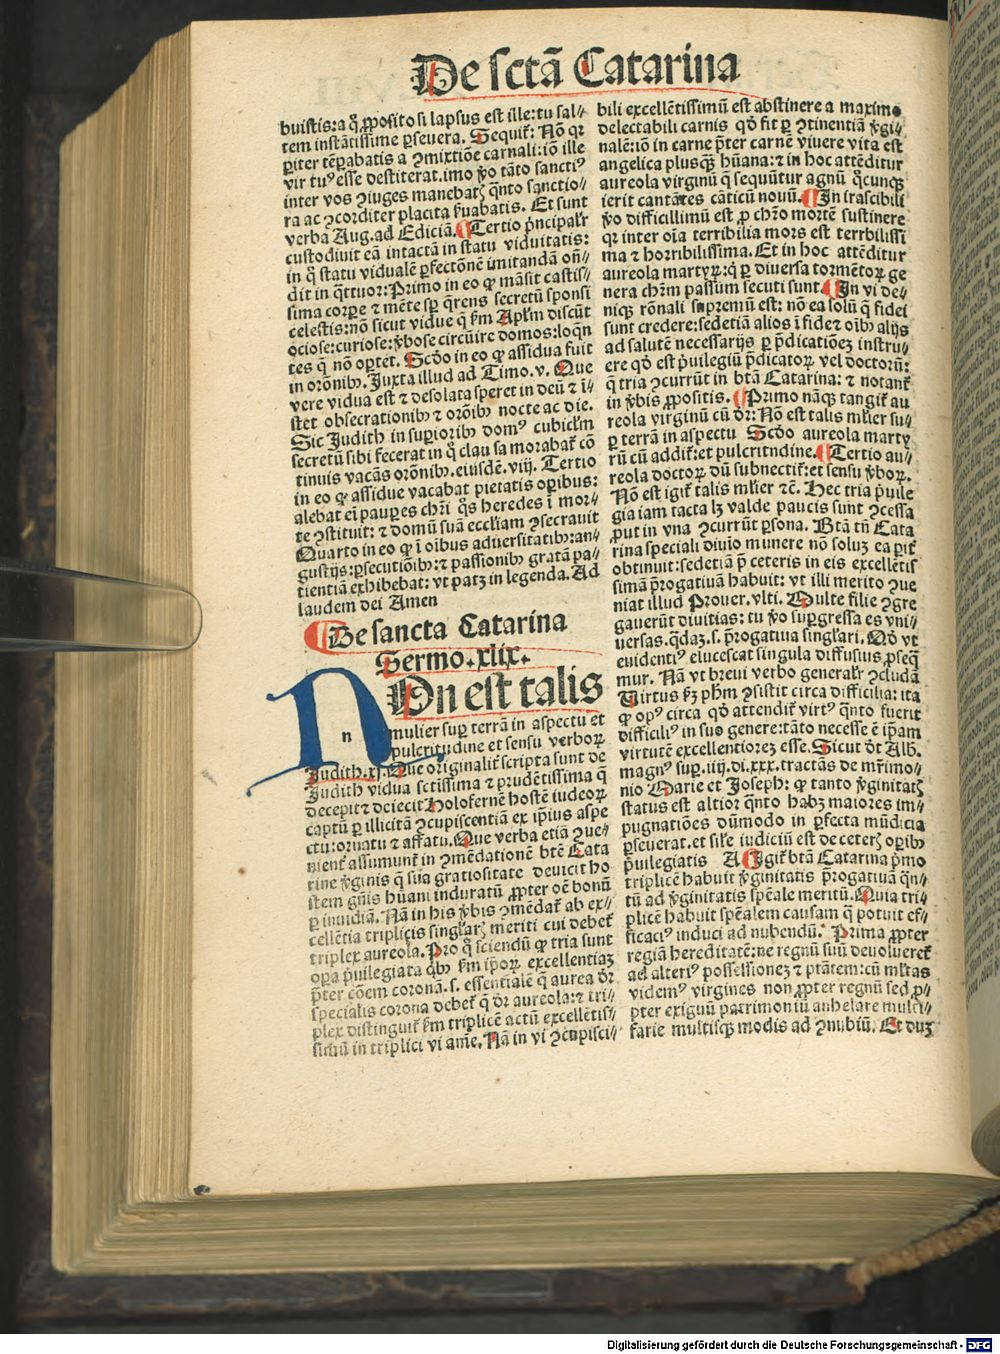 De sctā Catarina
buistis: a q̄ ꝓposito si lapsus est ille: tu sal⸗
tem instātissime ꝑseuera. Sequit᷑: Nō qꝛ
ꝑiter tēꝑabatis a ꝯmixtiōe carnali: iō ille
vir tuꝰ esse destiterat. imo v̓o tāto sanctiꝰ
inter vos ꝯiuges manebatꝫ q̄nto sanctio⸗
ra ac ꝯcorditer placita ẜuabatis. Et sunt
verba Aug. ad Ediciā. ¶ Tertio p̄ncipalr̄
custodiuit eā intactā in statu viduitatis:
in q̄ statu vidualē ꝑfectōnē imitandā oñ⸗
dit in q̄ttuor: Primo in eo ꝙ māsit castis⸗
sima corꝑe ⁊ mēte sꝑ q̄rens secretū sponsi
celestis: nō sicut vidue q̄ ẜm Apl̄m discūt
ociose: curiose: v̓bose circūire domos: loq̄n
tes q̄ nō oꝑtet. Scd̓o in eo ꝙ assidua fuit
in orōnibꝰ. Juxta illud ad Timo. v. Que
vere vidua est ⁊ desolata speret in deū ⁊ ī⸗
stet obsecrationibꝰ ⁊ orōibꝰ nocte ac die.
Sic Judith in suꝑioribꝰ domꝰ cubicl̄m
secretū sibi fecerat in q̄ clausa morabat᷑ cō
tinuis vacās orōnibꝰ. eiusdē. viij. Tertio
in eo ꝙ assidue vacabat pietatis oꝑibus:
alebat eī pauꝑes chr̄i q̄s heredes ī mor⸗
te ꝯstituit: ⁊ domū suā eccl̄iam ꝯsecrauit
Quarto in eo ꝙ ī oībus aduersitatibꝰ: an⸗
gustijs: ꝑsecutiōibꝰ: ⁊ passionibꝰ gratā pa⸗
tientiā exhibebat: vt patꝫ in legenda. Ad
laudem dei Amen
¶ De sancta Catarina
Sermo. xlix.
NOn est talis
mulier suꝑ terrā in aspectu et
pulcritudine et sensu verboꝝ
Judith. xj. Que originalit᷑ scripta sunt de
Judith vidua sctissima ⁊ prudētissima q̄
decepit ⁊ deiecit Holofernē hostē iudeoꝝ
captū ꝑ illicitā ꝯcupiscentiā ex ip̄ius aspe
ctu: ornatu ⁊ affatu. Que verba etiā ꝯue⸗
nient᷑ assumunt᷑ in ꝯmēdationē btē Cata
rine v̓ginis q̄ sua gratiositate deuicit ho
stem gn̄is hūani induratū ꝓpter oē bonū
ꝑ inuidiā. Nā in his v̓bis ꝯmēdat᷑ ab ex⸗
cellētia triplicis singlarꝫ meriti cui debet᷑
triplex aureola. Pro q̄ sciendū ꝙ tria sunt
oꝑa p̓uilegiata q̄bꝰ ẜm ip̄oꝝ excellentiaꝫ
p̄ter cōem coronā. s. essentialē q̄ aurea d̓r
specialis corona debet᷑ q̄ d̓r aureola: ⁊ tri⸗
plex distinguit᷑ ẜm triplicē actū excellētis⸗
simū in triplici vi aīe. Nā in vi ꝯcupisci⸗
bili excellētissimū est abstinere a maximo
delectabili carnis qd̓ fit ꝑ ꝯtinentiā v̓gi⸗
nalē: iō in carne p̄ter carnē viuere vita est
angelica plusqꝫ hūana: ⁊ in hoc attēditur
aureola virginū q̄ sequūtur agnū q̄cunqꝫ
ierit cantātes cāticū nouū. ¶ In irascibili
v̓o difficillimū est ꝓ chr̄o mortē sustinere
qꝛ inter oīa terribilia mors est terribilissi
ma ⁊ horribilissima. Et in hoc attēditur
aureola martyꝝ: q̄ ꝑ diuersa tormētoꝝ ge
nera chr̄m passum secuti sunt. ¶ In vi de⸗
niqꝫ rōnali supremū est: nō ea solū q̄ fidei
sunt credere: sed etiā alios ī fide ⁊ oībꝰ alijs
ad salutē necessarijs ꝑ p̄dicatiōeꝫ instru⸗
ere qd̓ est p̓uilegiū p̄dicatoꝝ vel doctorū:
q̄ tria ꝯcurrūt in btā Catarina: ⁊ notant᷑
in v̓bis ꝓpositis. ¶ Primo nāqꝫ tangit᷑ au
reola virginū cū d̓r: Nō est talis ml̓ier su⸗
ꝑ terrā in aspectu Scd̓o aureola marty
rū cū addit᷑: et pulcritudine. ¶ Tertio au⸗
reola doctoꝝ dū subnectit᷑: et sensu v̓boꝝ.
Nō est igit᷑ talis ml̓ier ⁊c. Hec tria p̓uile
gia iam tacta lꝫ valde paucis sunt ꝯcessa
ꝓut in vna ꝯcurrūt ꝑsona. Btā tn̄ Cata
rina speciali diuīo munere nō soluꝫ ea ꝑit᷑
obtinuit: sed etiā p̄ ceteris in eis excellētis
simā p̄rogatiuā habuit: vt illi merito ꝯue
niat illud Prouer. vlti. Multe filie ꝯgre
gauerūt diuitias: tu v̓o suꝑgressa es vni⸗
uersas. qdaꝫ. s. p̄rogatiua singlari. Qd̓ vt
euidentiꝰ elucescat singula diffusius ꝓseq̄
mur. Nā vt breui verbo generalr̄ ꝯcludā
Virtus ẜꝫ ph̄m ꝯsistit circa difficilia: ita
ꝙ opꝰ circa qd̓ attendit᷑ virtꝰ q̄nto fuerit
difficiliꝰ in suo genere: tāto necesse ē ip̄am
virtutē excellentioreꝫ esse. Sicut d̓t Alb.
magnꝰ suꝑ. iiij. di. xxx. tractās de mr̄imo⸗
nio Marie et Joseph: ꝙ tanto v̓ginitatꝫ
status est altior q̄nto habꝫ maiores im⸗
pugnatiōes dūmodo in ꝑfecta mūdicia
ꝑseuerat. et sil̓e iudiciū est de ceterꝫ oꝑibꝰ
p̓uilegiatis A ¶ Igit᷑ btā Catarina p̓mo
triplicē habuit v̓ginitatis p̄rogatiuā q̄n⸗
tū ad v̓ginitatis sp̄eale meritū. Quia tri⸗
plicē habuit sp̄ealem causam q̄ potuit ef⸗
ficaciꝰ induci ad nubendū. Prima ꝓpter
regiā hereditatē: ne regnū suū deuolueret᷑
ad alteriꝰ possessioneꝫ ⁊ ptātem: cū ml̓tas
videmꝰ virgines non ꝓpter regnū sed ꝓ⸗
pter exiguū patrimoniū anhelare multi⸗
farie multisqꝫ modis ad ꝯnubiū. Et duꝫ
Digitalisierung gefördert durch die Deutsche Forschungsgemeinschaft - DFG